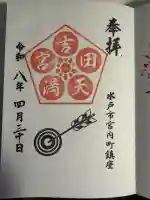 奉拝
水戸市宮内町鎮座
吉田天満宮
令和八年四月二十日